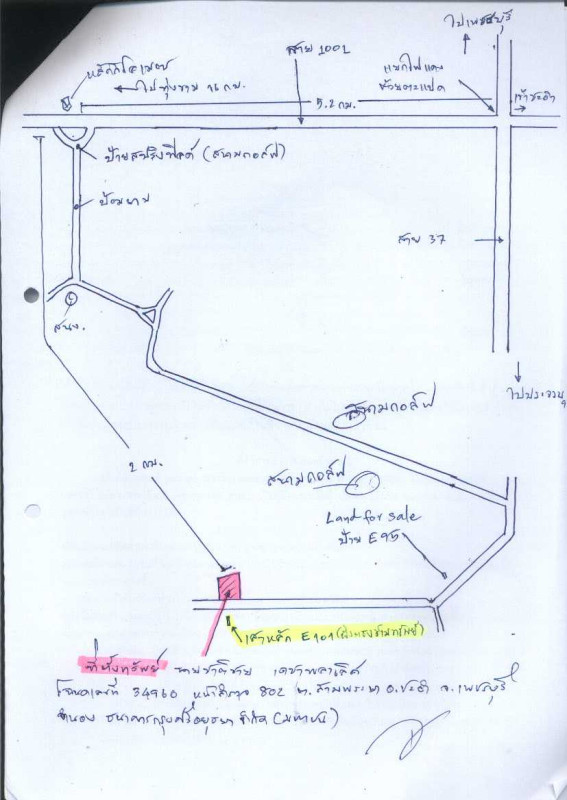 ไปเพชรบุรี
สาย 1001
หลักกิโลเมตร
ไปทุ่งขาม 16 กม.
5.2 กม.
แยกไฟแดง
ห้วยตะแปด
เข้าชะอำ
ป้ายสปริงฟิลด์ (สนามกอล์ฟ)
ป้อมยาม
สาย 37
สนง.
ไปประจวบฯ
สนามกอล์ฟ
2 กม.
สนามกอล์ฟ
Land for sale
ป้าย E95
เสาหลัก E101 (ฝั่งตรงข้ามทรัพย์)
ที่ตั้งทรัพย์ นายชาติชาย
โฉนดเลขที่ 34960 หน้าสำรวจ 802 ต.สามพระยา อ.ชะอำ จ.เพชรบุรี
จำนอง ธนาคารกรุงศรีอยุธยา จำกัด (มหาชน)